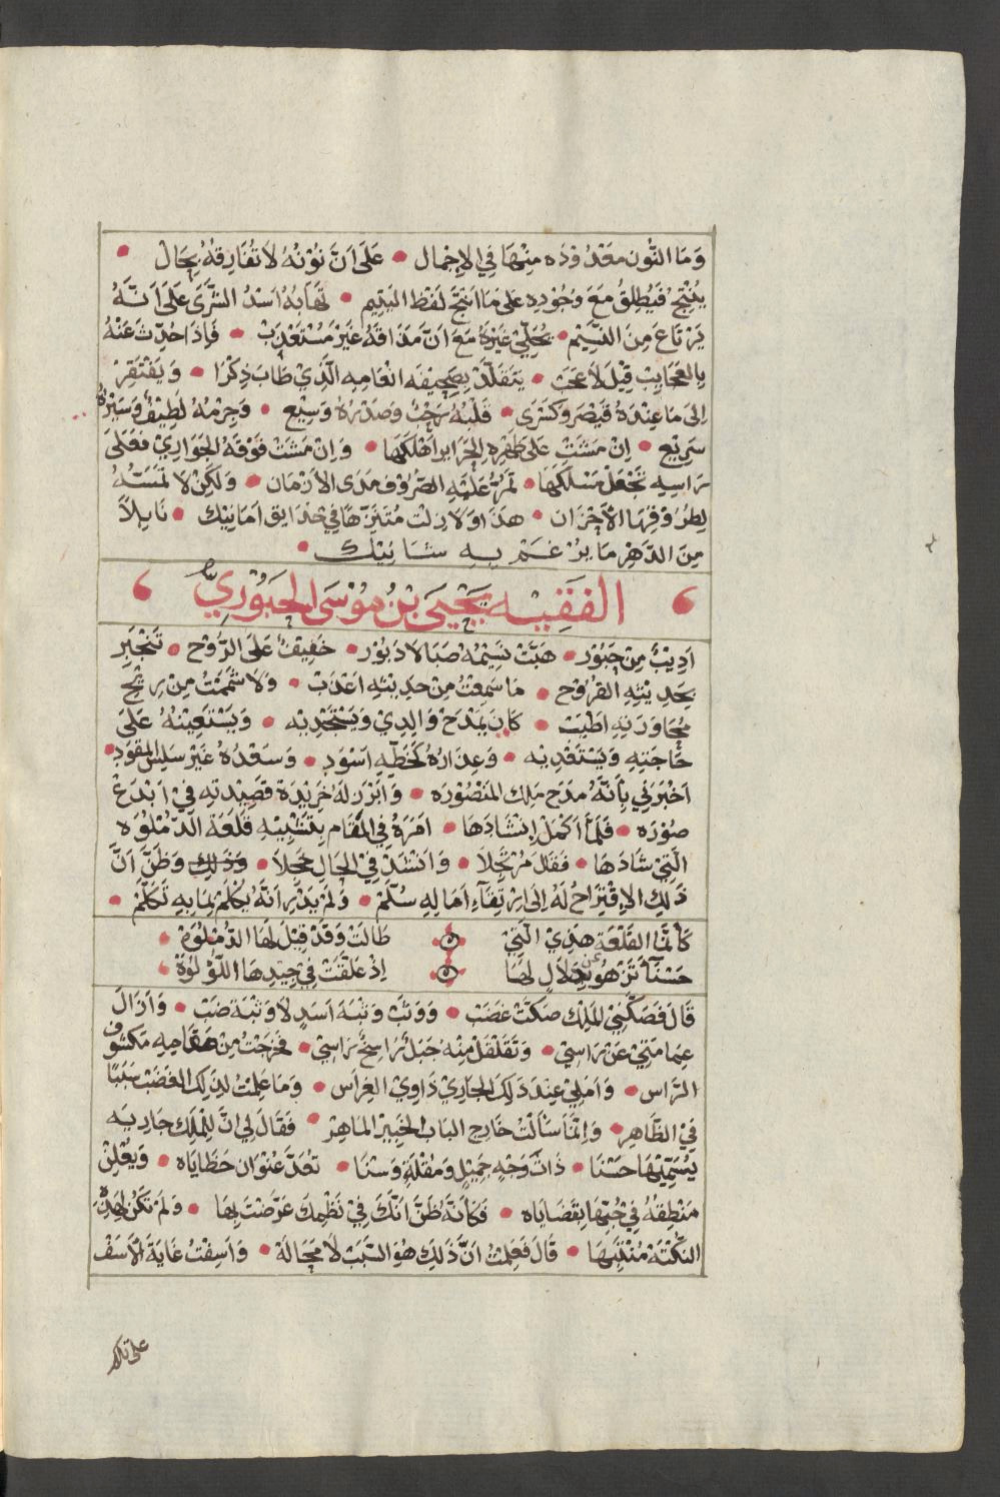 وَمَا النُّون مَعْدُودَه مِنْهَا فِي الاِجْمال • عَلَى اَنَّ نُوْنَهُ لاَ تُفَارِقهُ بِحَالْ •
يُنْتِجُ فَيُطْلِقُ مَعَ وُجُودِهِ عَلَى مَا انْتَجَ لَفظ اليَتِيمِ • تَهَابهُ اُسْدُ الشَّرَى عَلَى اَنَّهُ
يَرْتَاعَ مِنَ النَّسِيْم • يُحَلِّيْ غَيْرَهُ مَعَ انَّ مَذَاقَهُ غَيْرَ مُسْتَعْذَبْ • فَاِذَا حُدِّثَ عَنْهُ
بِالعَجَايِبْ قِيْلَ لاَ عَجَبْ • يَتَقَلَّدْ بِصَحِيْفَه انْعَامِهِ الَّذِيْ طَابَ ذِكْرَا • وَيَفْتَقِرْ
اِلَى مَا عِنْدَهُ قَيْصَرَ وكَسْرَى • قَلْبُهُ رَحْبٌ وَصَدْرُهُ وَسِيْع • وَجِرْمُهُ لَطِيْفٌ وَسَيْرُهُ
سَرِيْع • اِنْ مَشَتْ عَلى ظَهْرِهِ الجَرَايِر اَهْلَكَهَا • وَاِنْ مَشَتْ فَوْقَهُ الجَوَارِيْ فَعَلَى
رَاسِهِ تَجْعَلْ مَسْلَكَهَا • تَمُرُّ عَلَيْهِ الصُّرُوْف مَدَى الاَزْمَان • وَلَكِنْ لاَ تَمَسّهُ
لِطُرُوْقِهَا الاَحْزَان • هَذَا وَلاَ زِلْتَ مُتَنَزِّهًا فِي حَدَايِق اَمَانِيْك • نَايِلاً
مِنَ الدَّهْرِ مَا يرْغَمْ بِهِ شَانِيْك •
الفَقِيْه يَحْيَى بْنُ مُوْسَى الحَبُوْرِيُّ
اَدِيْبٌ مِنْ حَبُوْر • هَبَّتْ نَسِيْمُهُ صَبًا لاَ دَبُوْر • خَفِيْفٌ عَلَى الرُّوْحِ • تَنْجَبِر
بِحَدِيْثِهِ القُرُوْح • مَا سَمِعْتُ مِنْ حَدِيْثِهِ اَعْذَبْ • وَلاَ شَمَمْتُ مِنْ رِيْحِ
مُجَاوَرَتِهِ اطْيَبْ • كَانَ يَمْدَحْ وَالِدِيْ وَيَسْتَجْدِيْه • وَيَسْتَعِيْنهُ عَلَى
حَاجَتِهِ وَيَسْتَفْدِيْه • وَعِذَارُهُ كَحَظِّهِ اَسْوَد • وَسَعْدُهُ غَيْرَ سَلِسِ المِقْوَد •
اخْبَرَنِي بِاَنَّهُ مَدَحَ مَلِك المَنْصُوْرَه • وَابْرَزَ لَهُ خَرِيْدَة قَصِيْدَتِهِ فِيْ ابْدَعْ
صُوْرَه • فَلَمَّا اكْمَلَ اِنْشَادَهَا • اَمَرَهُ فِي المَقَامِ بِتَشْبِيْهِ قَلْعَة الدّمْلُوْه
الَّتِيْ شَادَهَا • فَقَالَ مُرْتَجِلاَ • وَانْشَدَ فِيْ الحَالِ عَجِلاَ • وَظَنَّ اَنَّ
ذَلِكَ الاِقْتِرَاحُ لَهُ اِلَى ارْتِقَاءِ اَمَالِهِ سُلَّمْ • وَلَمْ يَدْرِ اَنَّهُ يُكْلَمْ بِمَا بِهِ تَكَلَّمَ •
كَاَنَّمَا القَلْعَة هَذِي الَّتِيْ ۝ طَالَتْ وَقَدْ قِيْلَ لَهَا الدُّمْلُوَهْ •
حَسْنَاً تَزْهُو عَنْ جَلاَلٍ لَهَا ۝ اِذْ عَلَّقَتْ فِيْ جِيْدِهَا اللُّؤْلُؤَهْ •
قَالَ فَصَكَّنِي المَلِك صَكَّةَ غَضَبْ • وَوَثَبَ وَثْبَةَ اَسَدٍ لاَ وَثْبَة ضَبّ • وَازَالَ
عِمَامَتِيْ عَنْ رَاسِيْ • وَتَقَلْقَلَ مِنْهُ جَبَلُ رَاسِخ رَاسِيْ • فَخَرَجْتُ مِنْ مَقَامِهِ مَكْشُوْف
الرَّاس • وَاَمَلِيْ عِنْدَ ذَلِكَ الجَارِيْ ذَاوِي الغِرَاس • وَمَا عَلِمْتُ لِذَلِكَ الغَضَبْ سَبَبًا
فِيْ الظَّاهِر • وَاِنَّمَا سَاَلْتُ خَارِج البَاب الخَبِيْر المَاهِرْ • فَقَالَ لِي انَّ لِلْمَلِك جَارِيَه
يُسَمِّيْهَا حَسْنَا • ذَاتَ وَجْهٍ جَمِيْلٍ وَمُقْلَةٍ وَسْنَا • تُعَدّ عُنْوَان حَظَايَاه • وَيُعْلِنْ
مَنْطِقهُ فِيْ حُبّهَا بِقَضَايَاه • فَكَاَنَّهُ ظَنَّ اَنَّكَ فِيْ نَظْمِكَ عَرَّضْتَ بِهَا • وَلَمْ تَكُنْ لِهَذِهِ
النُّكْتَة مُنْتَبِهَا • قَالَ فَعَلِمْتُ اَنَّ ذَلِكَ هُوَ السَّبَبْ لاَ مَحَالَةْ • وَاَسِفْتُ غَايَةَ الاَسَفْ
على تلك